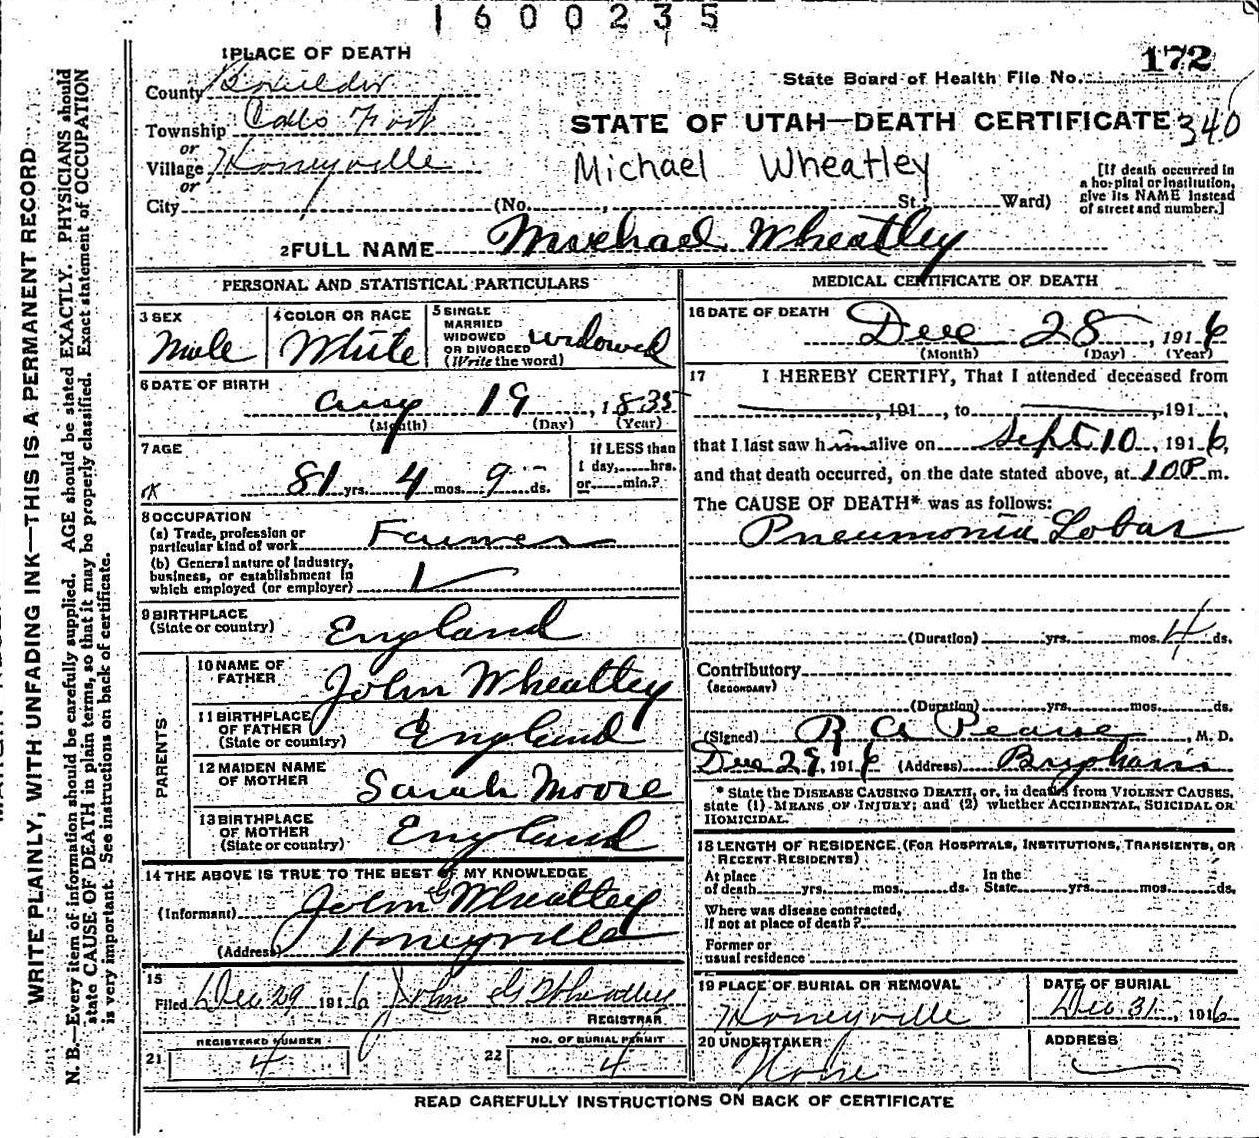 1600235
1 PLACE OF DEATH
172
State Board of Health File No.
County Boxelder
Township Calls Fort
STATE OF UTAH—DEATH CERTIFICATE 340
or
Village Honeyville
Michael Wheatley
[If death occurred in a hospital or institution, give its NAME instead of street and number.]
or
City (No. , St.; Ward)
2 FULL NAME Michael Wheatley
PERSONAL AND STATISTICAL PARTICULARS
3 SEX Male
4 COLOR OR RACE White
5 SINGLE MARRIED WIDOWED OR DIVORCED (Write the word) widowed
6 DATE OF BIRTH
Aug 19, 1835
(Month) (Day) (Year)
7 AGE
81 yrs. 4 mos. 9 ds.
If LESS than 1 day, hrs. or min.?
8 OCCUPATION
(a) Trade, profession or particular kind of work Farmer
(b) General nature of industry, business, or establishment in which employed (or employer)
9 BIRTHPLACE (State or country) England
PARENTS
10 NAME OF FATHER John Wheatley
11 BIRTHPLACE OF FATHER (State or country) England
12 MAIDEN NAME OF MOTHER Sarah Moore
13 BIRTHPLACE OF MOTHER (State or country) England
14 THE ABOVE IS TRUE TO THE BEST OF MY KNOWLEDGE
(Informant) John G Wheatley
(Address) Honeyville
15
Filed Dec 29 1916 John G Wheatley
REGISTRAR
21 REGISTERED NUMBER 4
22 NO. OF BURIAL PERMIT 4
MEDICAL CERTIFICATE OF DEATH
16 DATE OF DEATH Dec 28, 1916
(Month) (Day) (Year)
17 I HEREBY CERTIFY, That I attended deceased from
, 191 , to , 191 ,
that I last saw him alive on Sept 10, 1916,
and that death occurred, on the date stated above, at 10 P m.
The CAUSE OF DEATH* was as follows:
Pneumonia Lobar
(Duration) yrs. mos. 4 ds.
Contributory
(SECONDARY)
(Duration) yrs. mos. ds.
(Signed) R A Pearse, M. D.
Dec 29, 1916 (Address) Brigham
* State the DISEASE CAUSING DEATH, or, in deaths from VIOLENT CAUSES, state (1) MEANS OF INJURY; and (2) whether ACCIDENTAL, SUICIDAL OR HOMICIDAL.
18 LENGTH OF RESIDENCE (FOR HOSPITALS, INSTITUTIONS, TRANSIENTS, OR RECENT RESIDENTS)
At place of death yrs. mos. ds. In the State yrs. mos. ds.
Where was disease contracted, if not at place of death?
Former or usual residence
19 PLACE OF BURIAL OR REMOVAL Honeyville
DATE OF BURIAL Dec 31, 1916
20 UNDERTAKER None
ADDRESS
READ CAREFULLY INSTRUCTIONS ON BACK OF CERTIFICATE
WRITE PLAINLY, WITH UNFADING INK—THIS IS A PERMANENT RECORD
N. B.—Every item of information should be carefully supplied. AGE should be stated EXACTLY. PHYSICIANS should
state CAUSE OF DEATH in plain terms, so that it may be properly classified. Exact statement of OCCUPATION
is very important. See instructions on back of certificate.